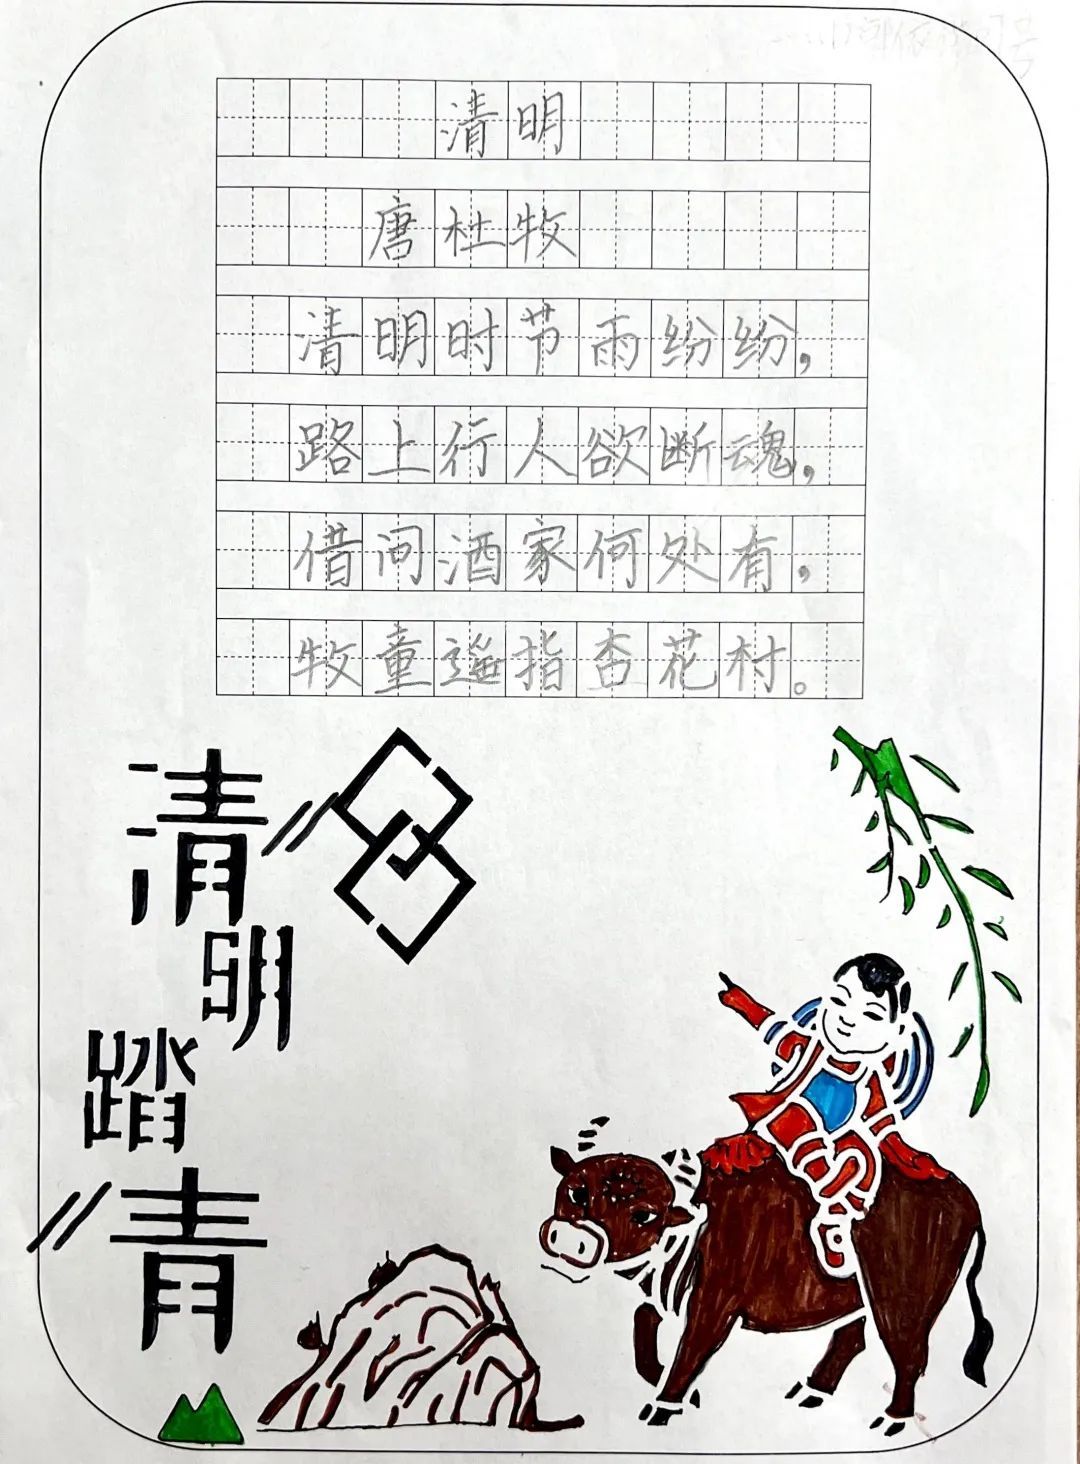 清明
唐杜牧
清明时节雨纷纷，
路上行人欲断魂，
借问酒家何处有，
牧童遥指杏花村。
清明
踏青